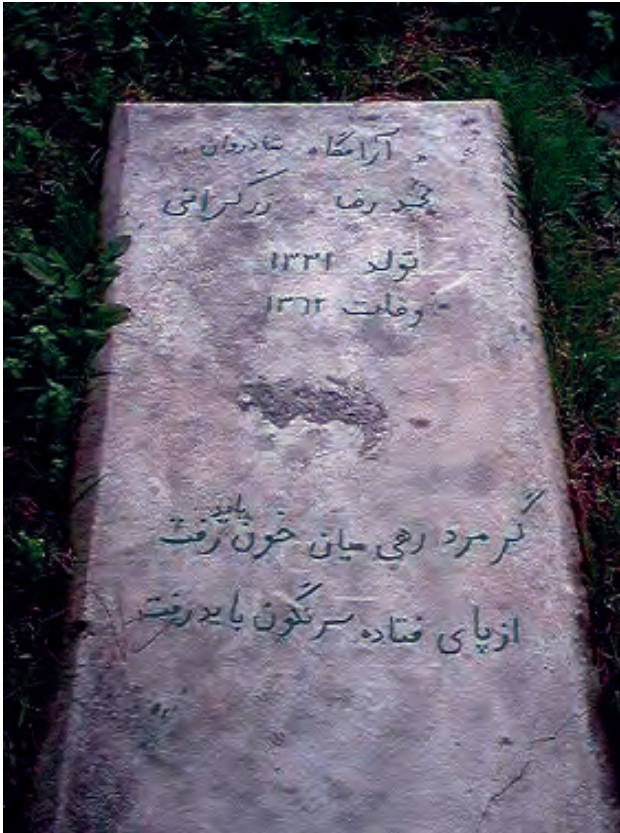 آرامگاه شادروان
محمد رضا زرگرافی
تولد ۱۳۳۹
وفات ۱۳۶۲
گر مرد رهی میان خون باید رفت
از پای فتاده سرنگون باید رفت